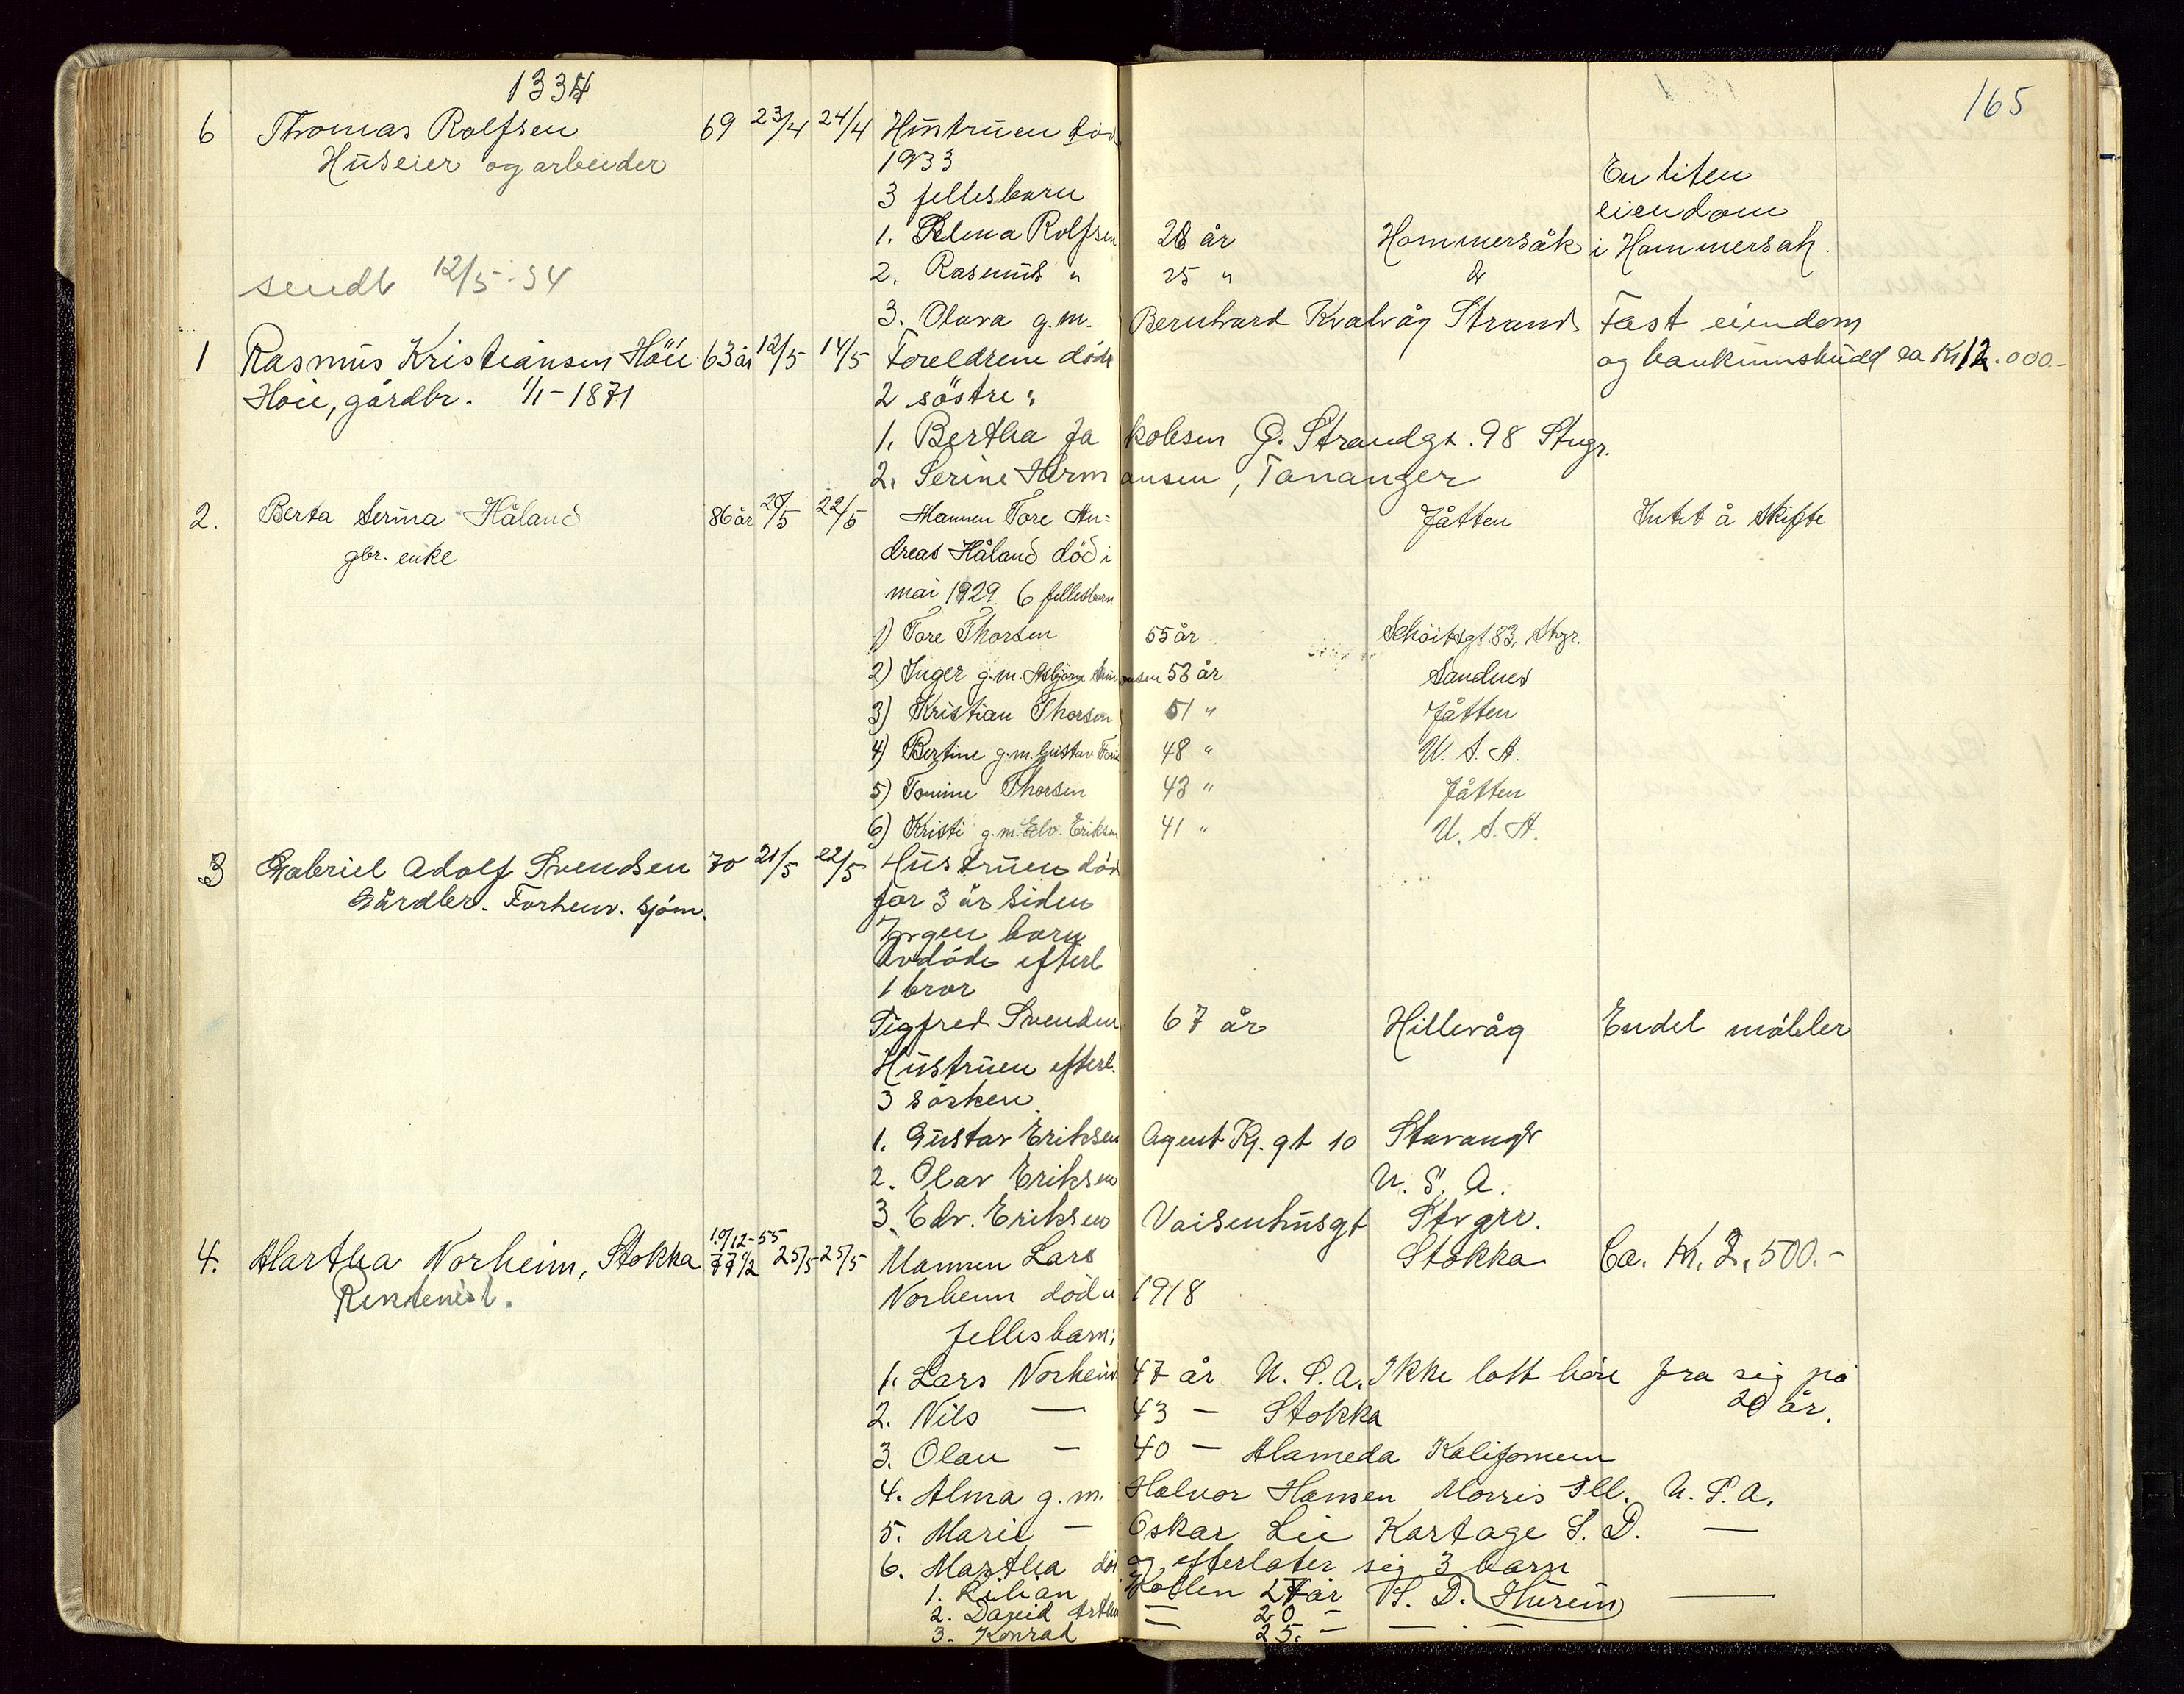 1334
165
6 Thomas Rolfsen 69 23/4 24/4 Hustruen död
Huseier og arbeider 1933
En liten
3 fellesbarn eiendom
1. Selma Rolfsen 28 år Hommersåk i Hommersåk.
sendt 12/5-34 2. Rasmus " 25 "
3. Olava g.m. Bernhard Kvalvåg Strand Fast eiendom
1 Rasmus Kristiansen Höie 63 år 12/5 14/5 Foreldrene döde og bankinnskudd ca Kr 12.000.-
Höie, gårdbr. 1/1-1871 2 söstre:
1. Bertha Jakobsen Ö. Strandgt. 98 Stvgr.
2. Serine Hermansen, Tananger
2. Berta Serina Håland 86 år 20/5 22/5 Mannen Tore An= Jåtten Intet å skifte
gbr. enke dreas Håland död i
mai 1929. 6 fellesbarn
1) Tore Thorsen 55 år Schöitsgt. 83, Stvgr.
2) Inger g.m. Asbjörn 53 år Sandnes
3) Kristian Thorsen 51 " Jåtten
4) Bertine g.m. Gustav 48 " U.S.A.
5) Tomine Thorsen 43 " Jåtten
6) Kristi g.m. Edv. Eriksen 41 " U.S.A.
3 Gabriel Adolf Svendsen 70 21/5 22/5 Hustruen död
Gårdbr. Forhenv. sjöm. for 3 år siden
Ingen barn
Avdöde efterl
1 bror
Sigfred Svendsen 67 år Hillevåg Endel möbler
Hustruen efterl.
3 sösken
1. Gustav Eriksen Agent Kj. gt 10 Stavanger
2. Olav Eriksen U.S.A.
3. Edv. Eriksen Vaisenhusgt Stvgrr.
10/12-55
4. Martha Norheim, Stokka 77 1/2 25/5 25/5 Mannen Lars Stokka Ca. Kr. 2.500.-
Rentenist. Norheim död 1918
fellesbarn:
1. Lars Norheim 47 år U.S.A. Ikke latt höre fra sig på
20 år.
2. Nils — 43 — Stokka
3. Olau — 40 — Alameda Kalifornien
4. Alma g.m. Halvor Hansen Morris Ill. U.S.A.
5. Marie — Oskar Lie Kartage S.D. —
6. Martha död og efterlater sig 3 barn
1. Lilian Kollen 27 år S.D. Hurein —
2. David — 20 —
3. Konrad — 25. — — . —